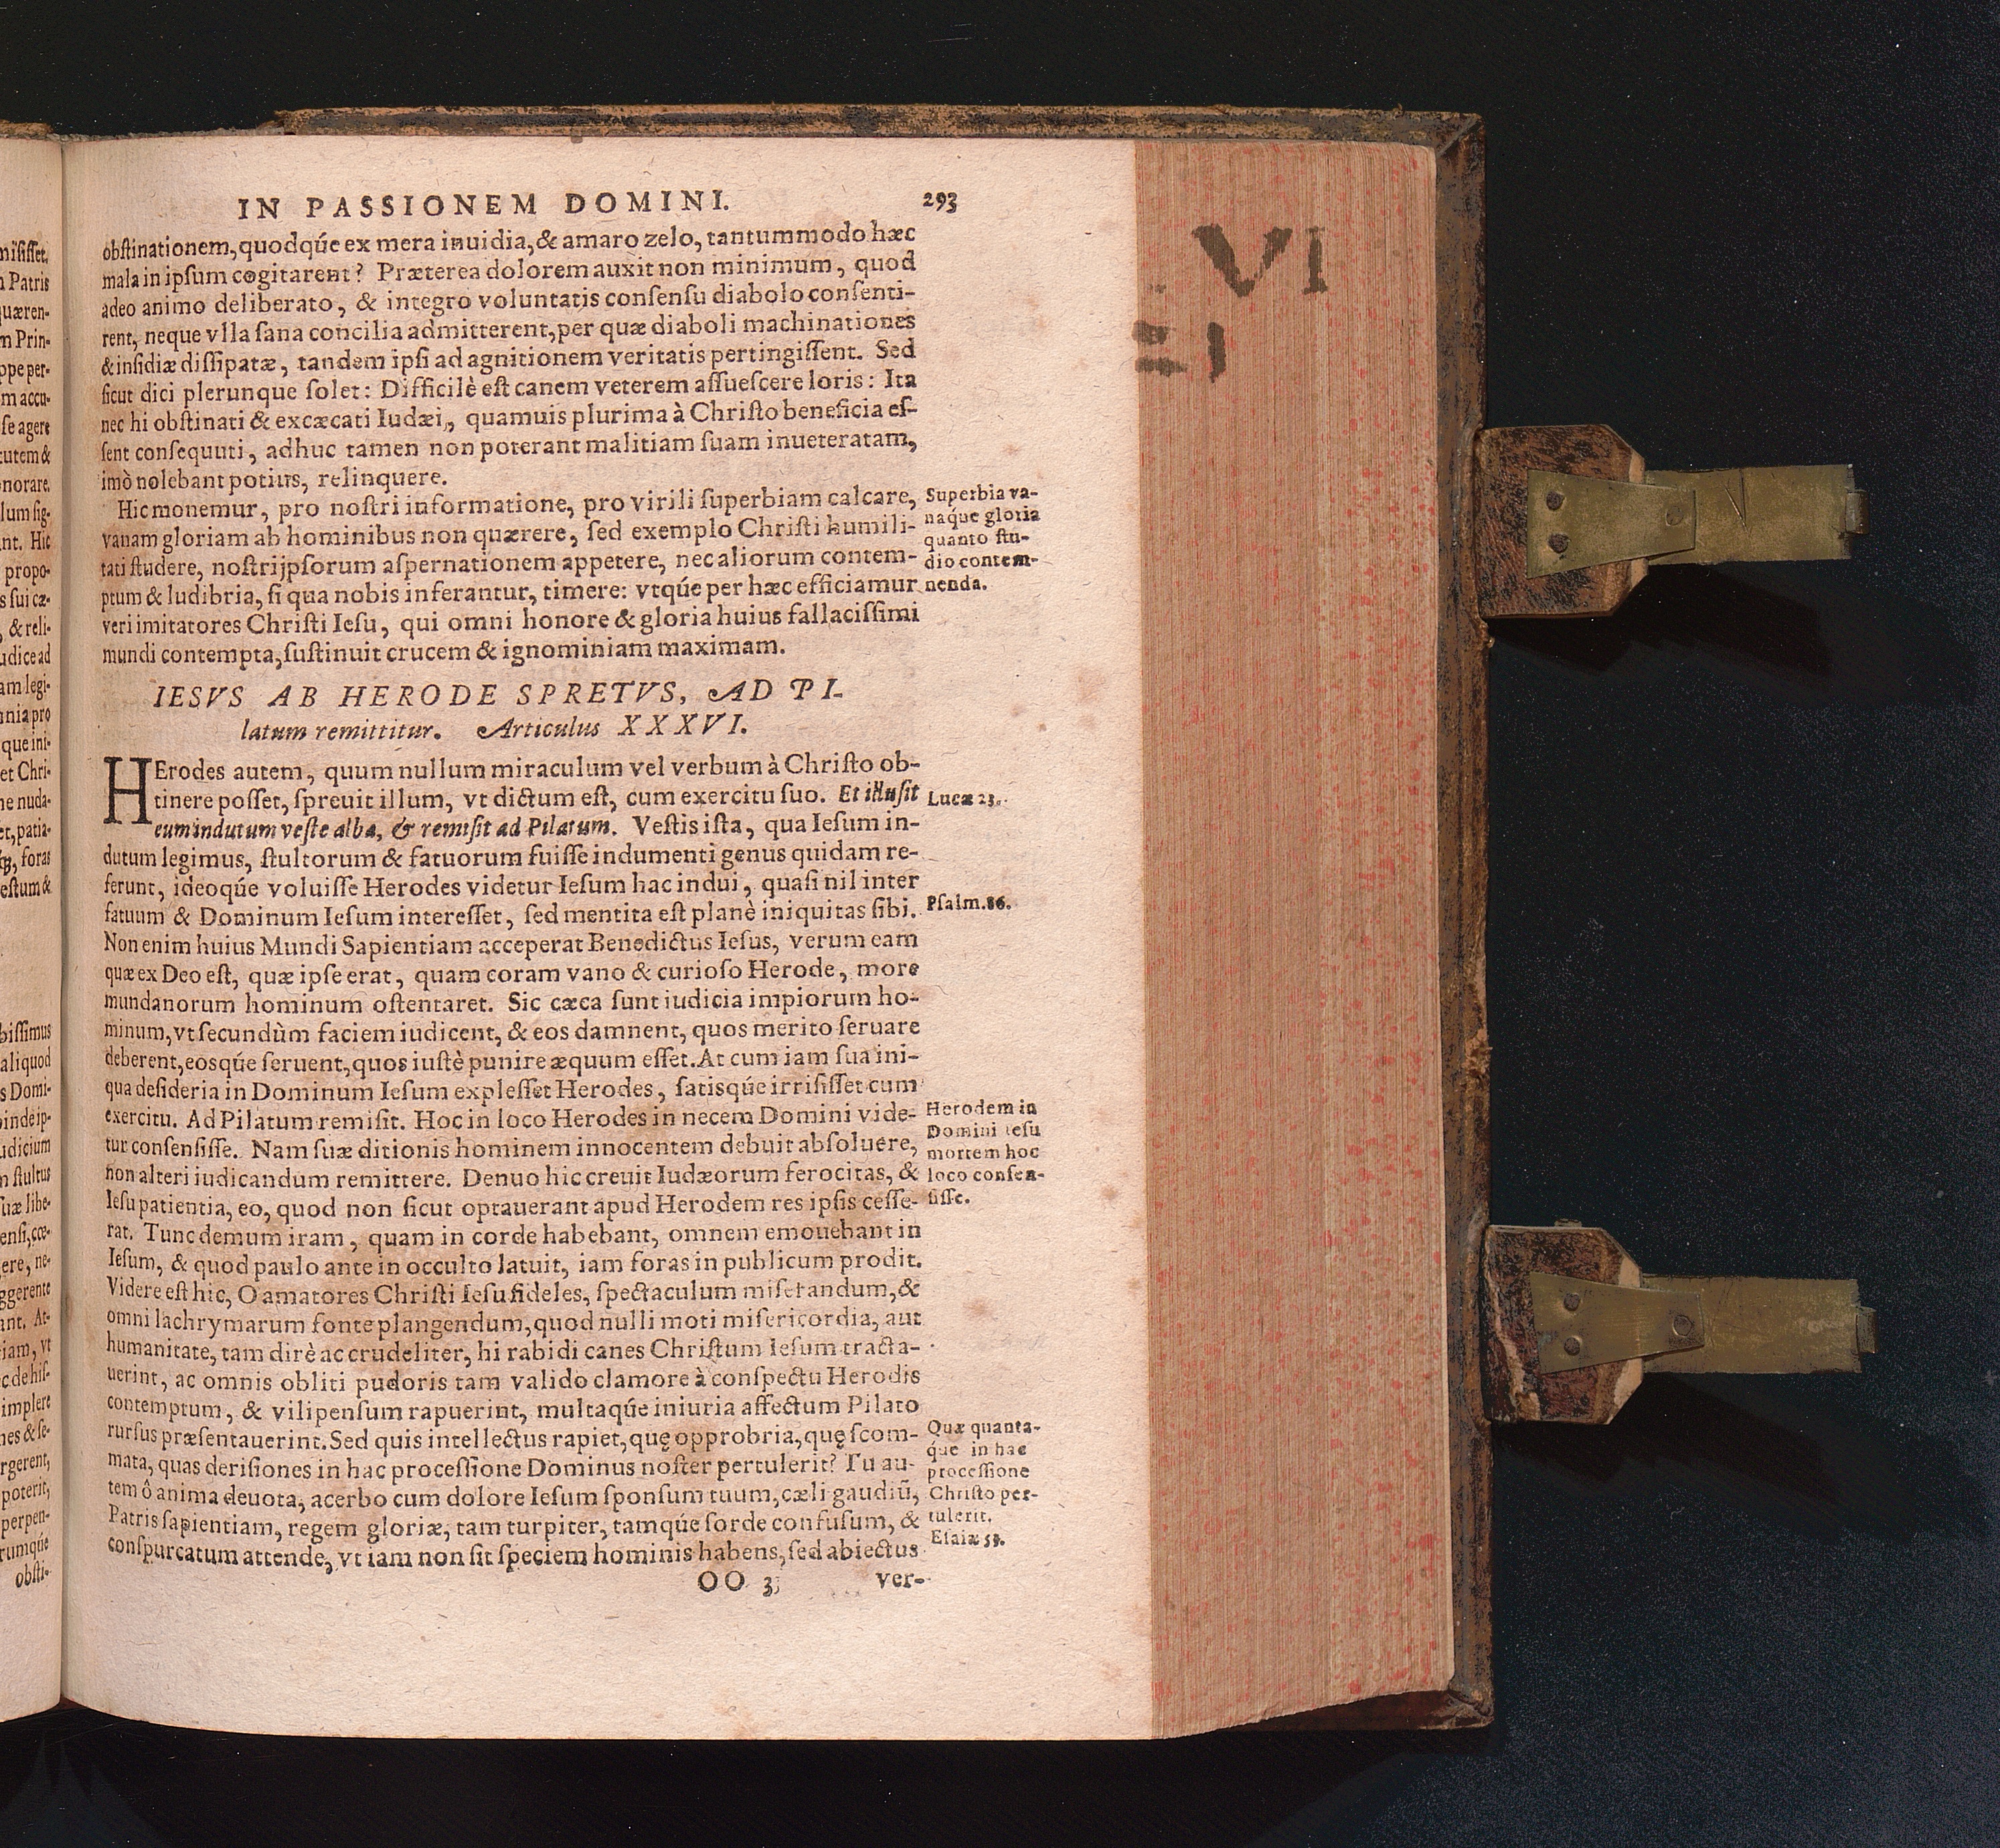 IN PASSIONEM DOMINI. 293
obſtinationem, quodqúe ex mera inuidia, & amaro zelo, tantummodo hæc
mala in ipſum cogitarent? Præterea dolorem auxit non minimum, quod
adeo animo deliberato, & integro voluntatis conſenſu diabolo conſenti-
rent, neque vlla ſana concilia admitterent, per quæ diaboli machinationes
& inſidiæ diſſipatæ, tandem ipſi ad agnitionem veritatis pertingiſſent. Sed
ſicut dici plerunque ſolet: Difficilè eſt canem veterem aſſueſcere loris: Ita
nec hi obſtinati & excæcati Iudæi, quamuis plurima à Chriſto beneficia eſ-
ſent conſequuti, adhuc tamen non poterant malitiam ſuam inueteratam,
imò nolebant potius, relinquere.
Hic monemur, pro noſtri informatione, pro virili ſuperbiam calcare,
vanam gloriam ab hominibus non quærere, ſed exemplo Chriſti humili-
tati ſtudere, noſtrijpſorum aſpernationem appetere, nec aliorum contem-
ptum & ludibria, ſi qua nobis inferantur, timere: vtqúe per hæc efficiamur
veri imitatores Chriſti Ieſu, qui omni honore & gloria huius fallaciſſimi
mundi contempta, ſuſtinuit crucem & ignominiam maximam.
Superbia va-
naqúe gloria
quanto ſtu-
dio contem-
nenda.
IESVS AB HERODE SPRETVS, AD PI-
latum remittitur. Articulus XXXVI.
HErodes autem, quum nullum miraculum vel verbum à Chriſto ob-
tinere poſſet, ſpreuit illum, vt dictum eſt, cum exercitu ſuo. Et illuſit
eum indutum veſte alba, & remiſit ad Pilatum. Veſtis iſta, qua Ieſum in-
dutum legimus, ſtultorum & fatuorum fuiſſe indumenti genus quidam re-
ferunt, ideoqúe voluiſſe Herodes videtur Ieſum hac indui, quaſi nil inter
fatuum & Dominum Ieſum intereſſet, ſed mentita eſt planè iniquitas ſibi.
Non enim huius Mundi Sapientiam acceperat Benedictus Ieſus, verum eam
quæ ex Deo eſt, quæ ipſe erat, quam coram vano & curioſo Herode, more
mundanorum hominum oſtentaret. Sic cæca ſunt iudicia impiorum ho-
minum, vt ſecundùm faciem iudicent, & eos damnent, quos merito ſeruare
deberent, eosqúe ſeruent, quos iuſtè punire æquum eſſet. At cum iam ſua ini-
qua deſideria in Dominum Ieſum expleſſet Herodes, ſatisqúe irriſiſſet cum
exercitu. Ad Pilatum remiſit. Hoc in loco Herodes in necem Domini vide-
tur conſenſiſſe. Nam ſuæ ditionis hominem innocentem debuit abſoluere,
non alteri iudicandum remittere. Denuo hic creuit Iudæorum ferocitas, &
Ieſu patientia, eo, quod non ſicut optauerant apud Herodem res ipſis ceſſe-
rat. Tunc demum iram, quam in corde habebant, omnem emouebant in
Ieſum, & quod paulo ante in occulto latuit, iam foras in publicum prodit.
Videre eſt hic, O amatores Chriſti Ieſu fideles, ſpectaculum miſerandum, &
omni lachrymarum fonte plangendum, quod nulli moti miſericordia, aut
humanitate, tam dirè ac crudeliter, hi rabidi canes Chriſtum Ieſum tracta-
uerint, ac omnis obliti pudoris tam valido clamore à conſpectu Herodis
contemptum, & vilipenſum rapuerint, multaqúe iniuria affectum Pilato
rurſus præſentauerint. Sed quis intellectus rapiet, quę opprobria, quę ſcom-
mata, quas deriſiones in hac proceſſione Dominus noſter pertulerit? Tu au-
tem ô anima deuota, acerbo cum dolore Ieſum ſponſum tuum, cæli gaudiũ,
Patris ſapientiam, regem gloriæ, tam turpiter, tamqúe ſorde confuſum, &
conſpurcatum attende, vt iam non ſit ſpeciem hominis habens, ſed abiectus
Lucæ 23.
Pſalm. 86.
Herodem in
Domini Ieſu
mortem hoc
loco conſen-
ſiſſe.
Quæ quanta-
qúe in hac
proceſſione
Chriſto per-
tulerit.
Eſaiæ 53.
OO 3 ver-
VI